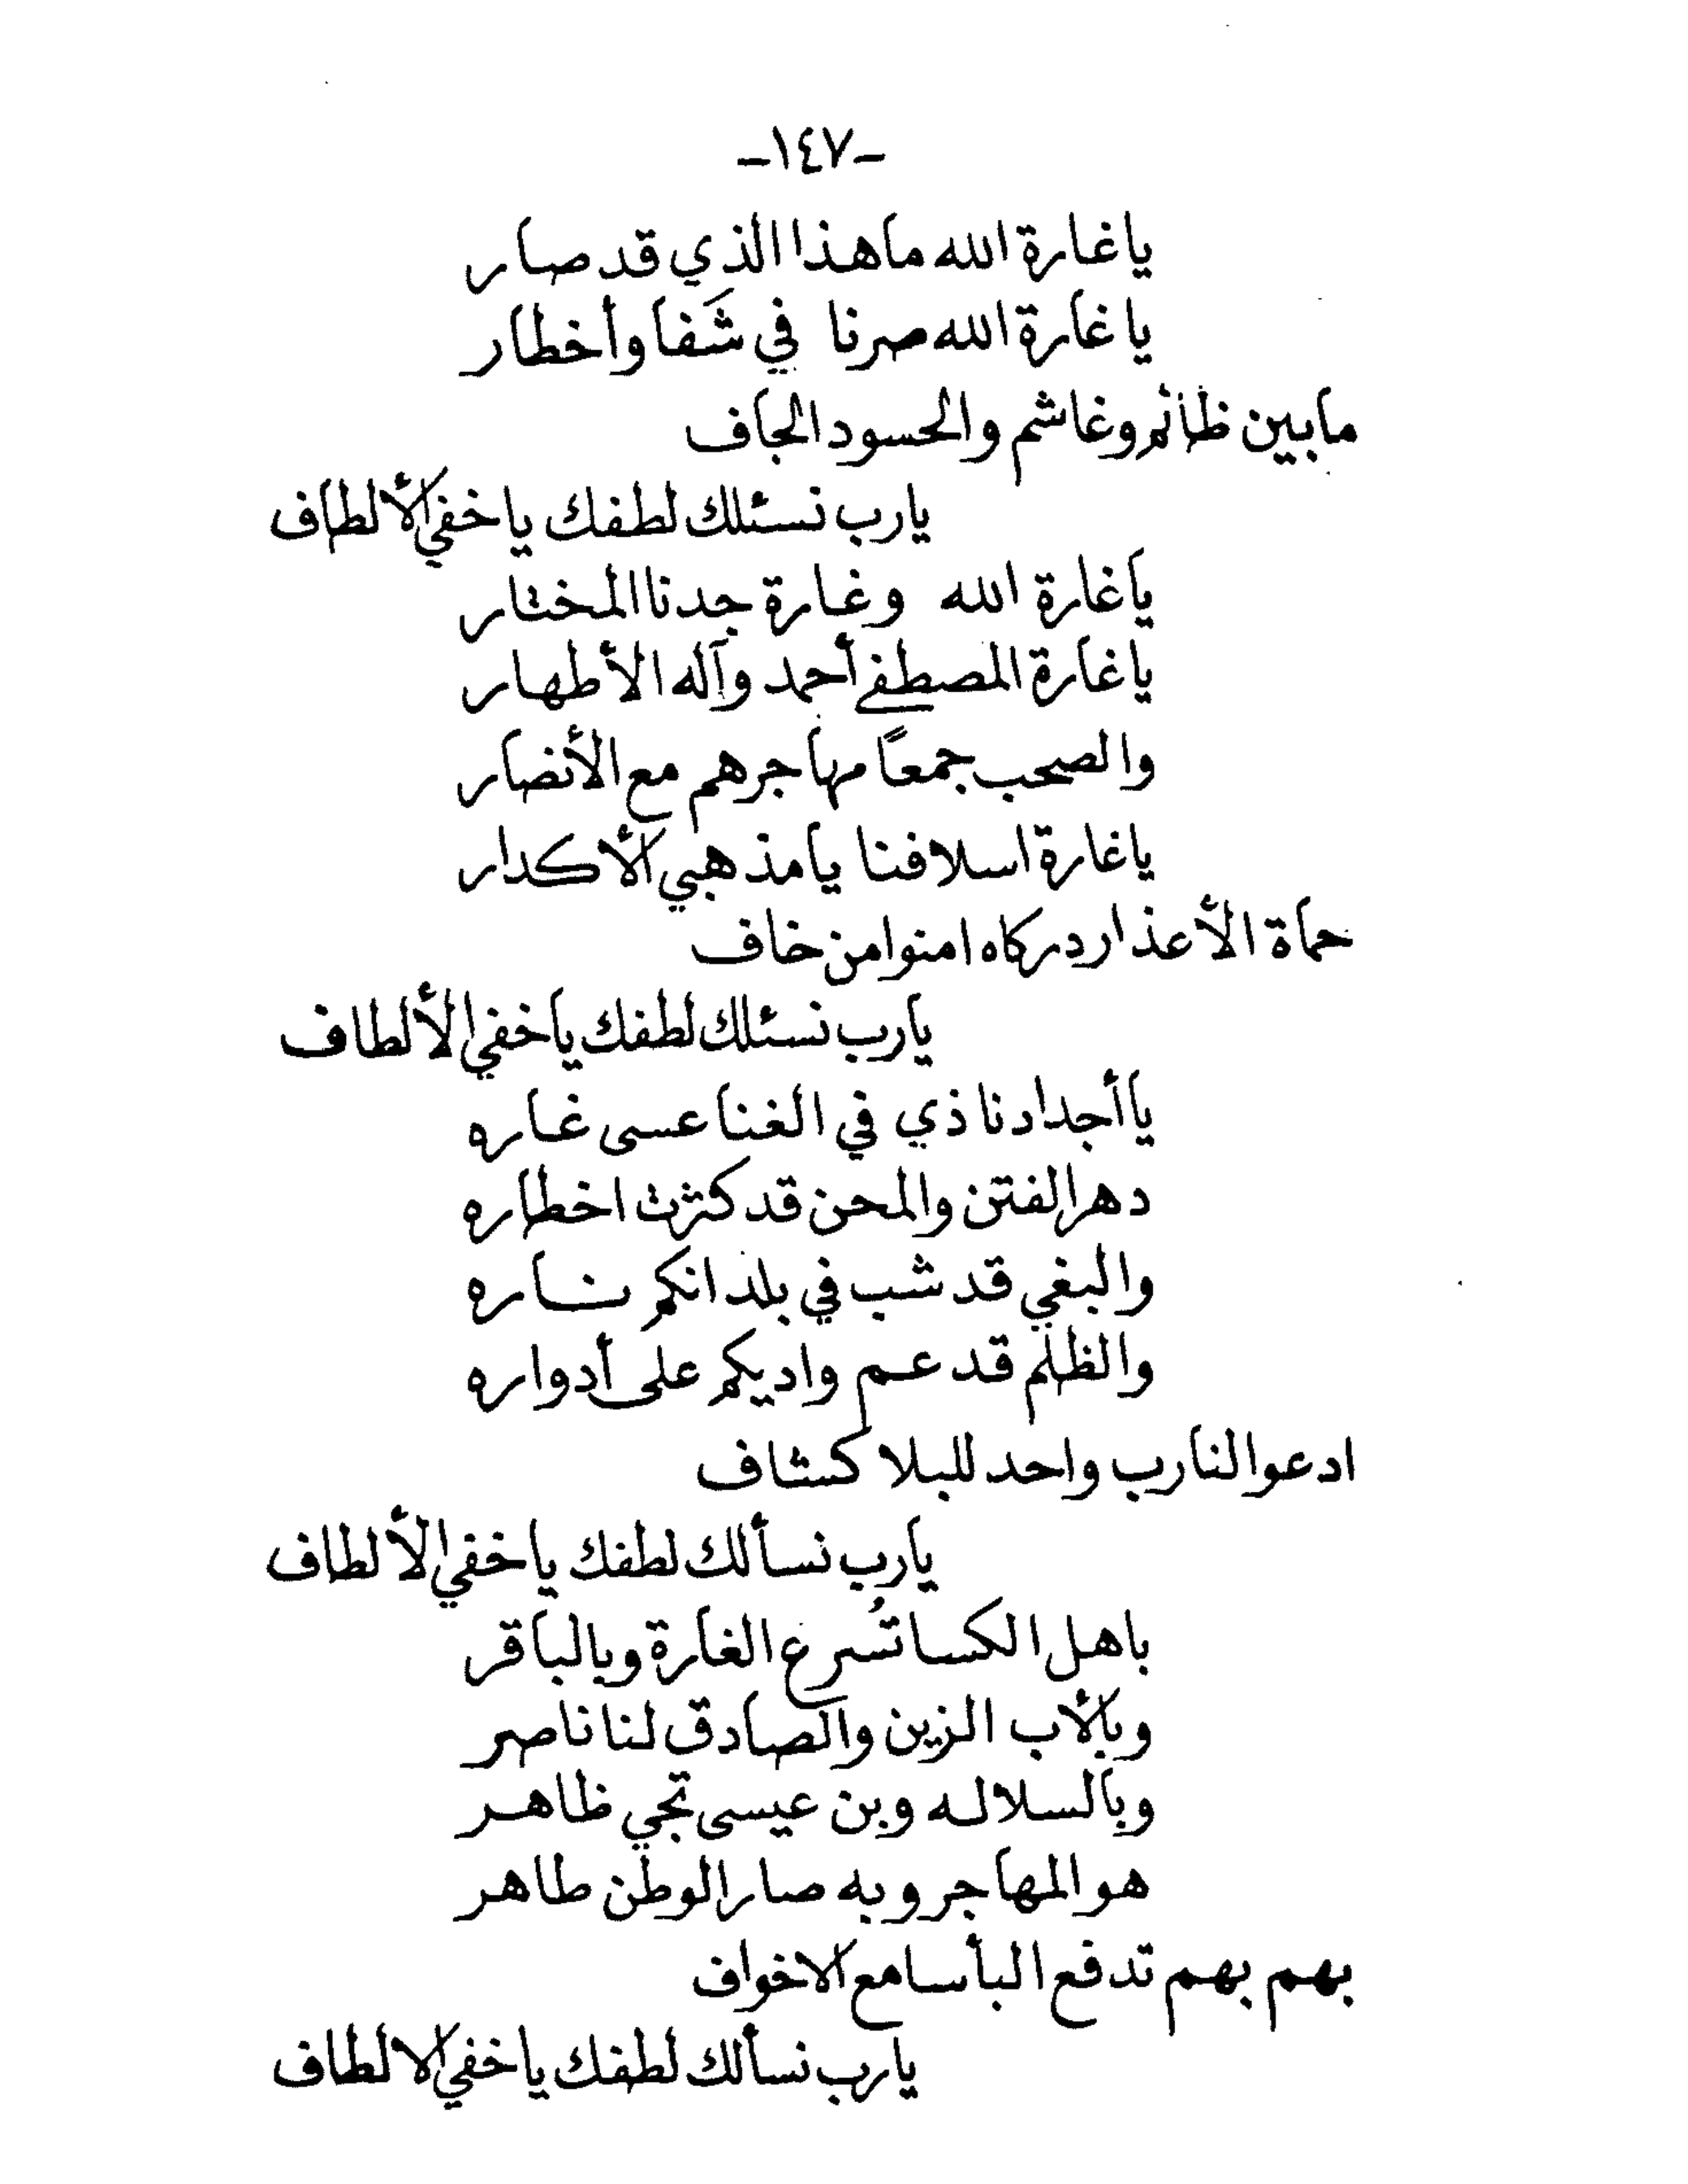 -١٤٧-
يا غارة الله ما هذا الذي قد صار
يا غارة الله صرنا في شَفا وأخطار
ما بين ظالم وغاشم والحسود الجاف
يارب نسئلك لطفك يا خفي الألطاف
يا غارة الله وغارة جدنا المختار
يا غارة المصطفى أحمد وآله الأطهار
والصحب جمعاً مهاجرهم مع الأنصار
يا غارة اسلافنا يا مذهبي الأكدار
حماة الأعذار دركاه امنوا من خاف
يارب نسئلك لطفك يا خفي الألطاف
يا أجدادنا ذي في الغنا عسى غاره
دهر الفتن والمحن قد كثرت اخطاره
والبغي قد شب في بلدانكم ناره
والظلم قد عم واديكم على أدواره
ادعوا لنا رب واحد للبلا كشاف
يارب نسألك لطفك يا خفي الألطاف
باهل الكسا تُسرع الغارة وبالباقر
وبالأب الزين والصادق لنا ناصر
وبالسلاله وبن عيسى تجي ظاهر
هو المهاجر وبه صار الوطن طاهر
بهم بهم تدفع البأسا مع الاخواف
يارب نسألك لطفك يا خفي الالطاف